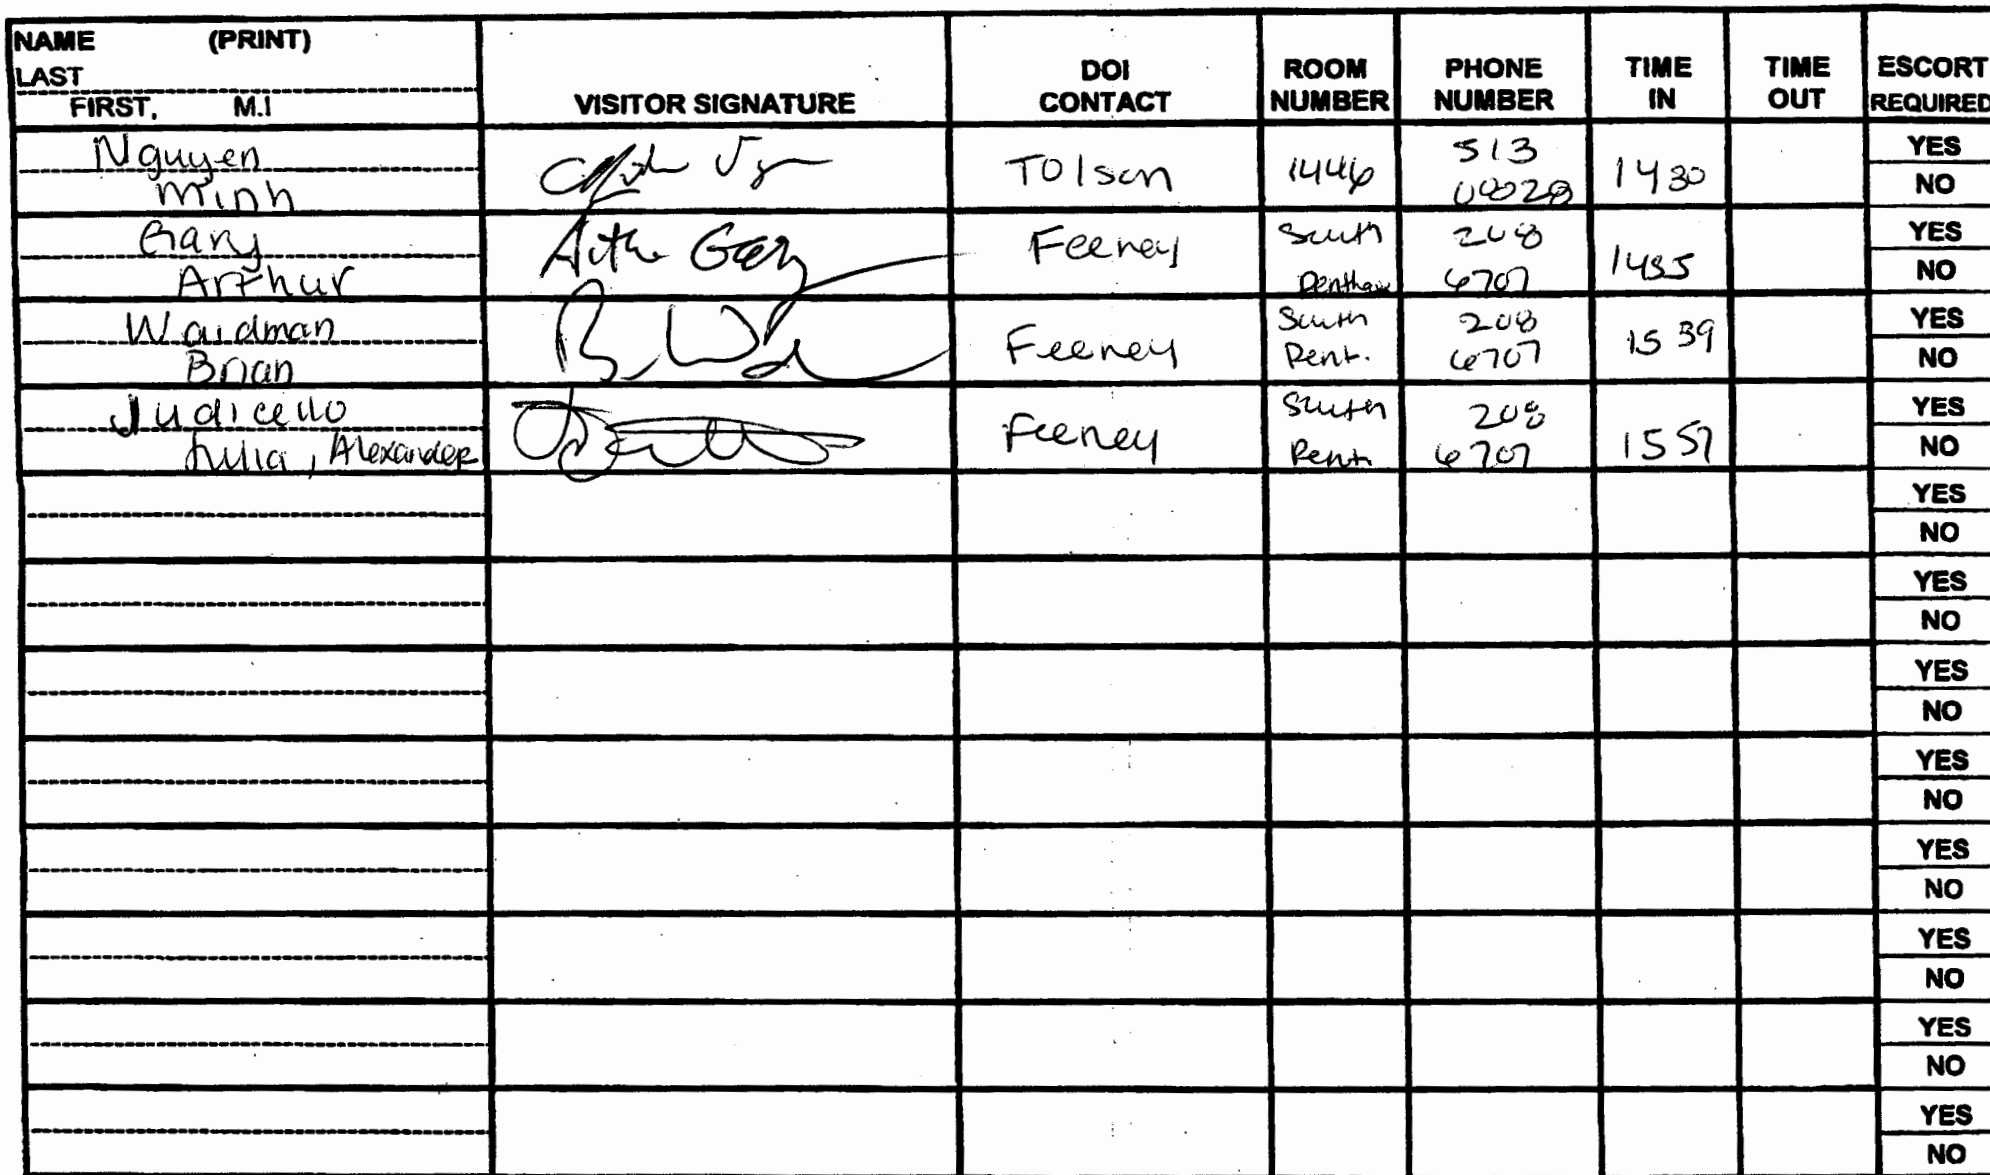 NAME (PRINT)
LAST
FIRST, M.I
VISITOR SIGNATURE
DOI CONTACT
ROOM NUMBER
PHONE NUMBER
TIME IN
TIME OUT
ESCORT REQUIRED
Nguyen
Minh
Tolson
1446
513
1430
YES
NO
Gary
Arthur
Arthur Gary
Feeney
South
208
6707
1435
YES
NO
Waidman
Brian
Feeney
South
Pent.
208
6707
1539
YES
NO
Judicello
Julia, Alexander
Feeney
South
Pent.
208
6707
1557
YES
NO
YES
NO
YES
NO
YES
NO
YES
NO
YES
NO
YES
NO
YES
NO
YES
NO